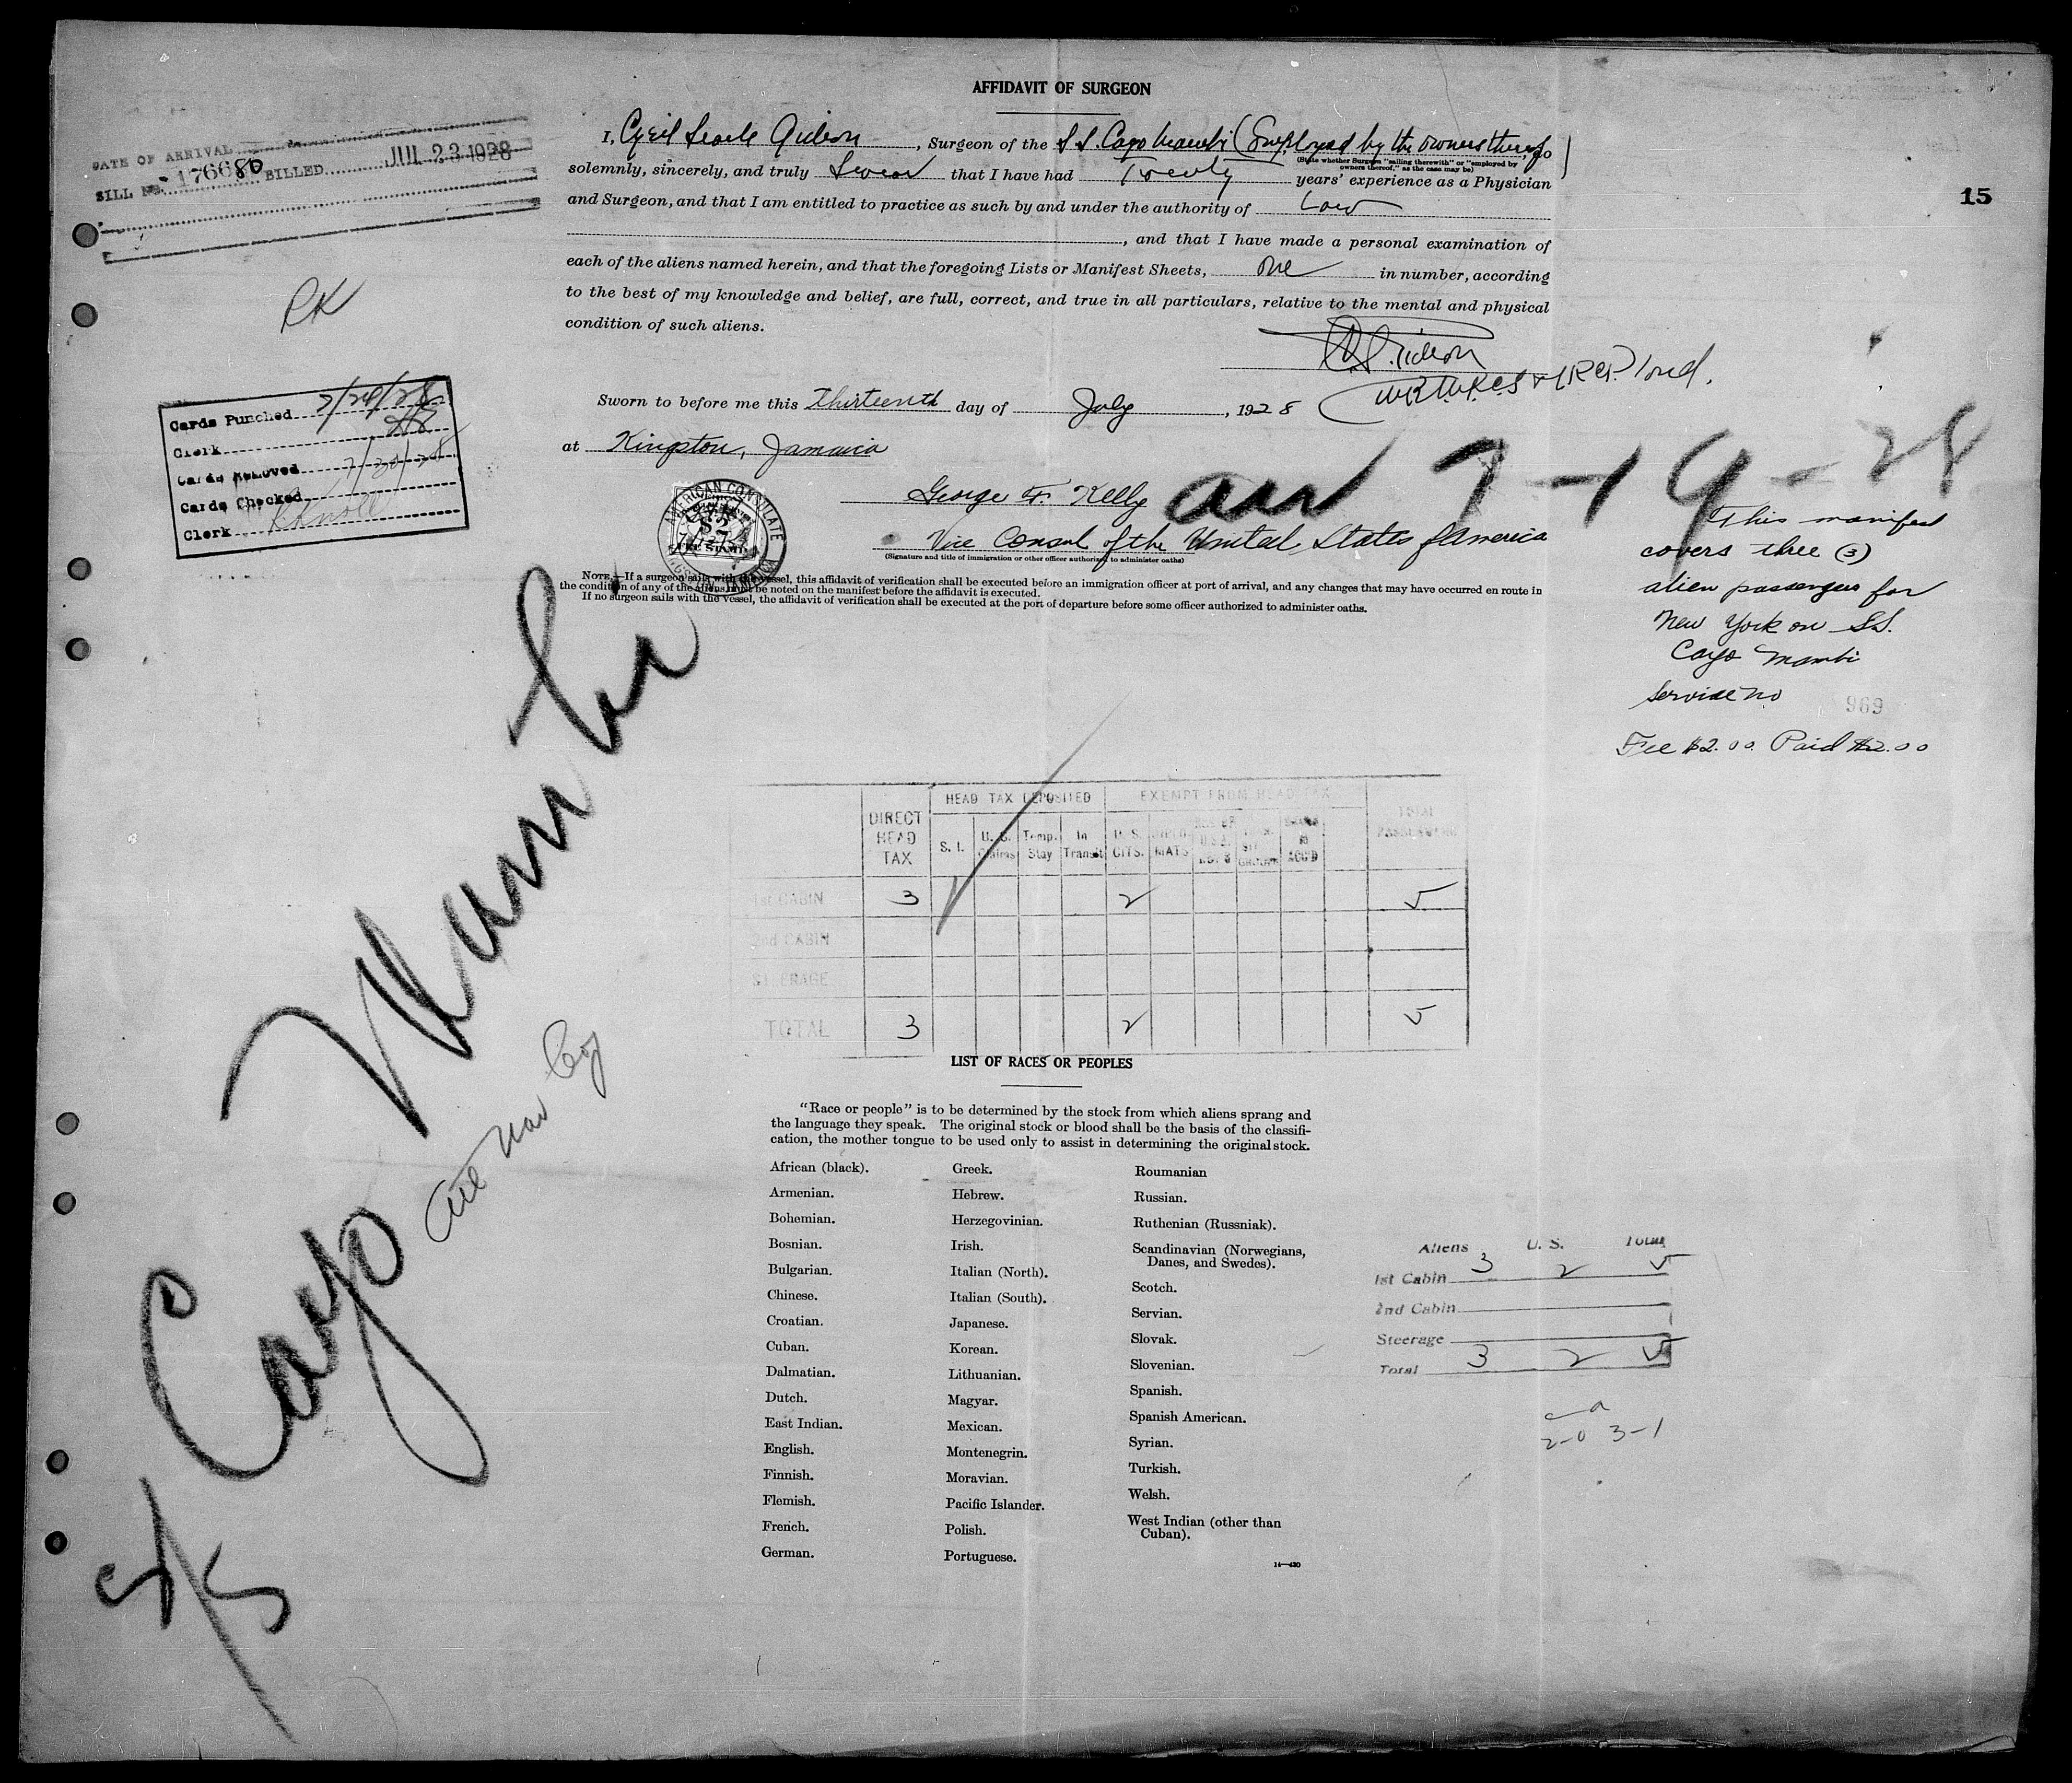 AFFIDAVIT OF SURGEON
I, Cyril Searle Gideon, Surgeon of the S.S. Cayo Mambi (Employed by the owners thereof) do
(State whether Surgeon "sailing therewith" or "employed by
owners thereof," as the case may be)
solemnly, sincerely, and truly Swear that I have had Twenty years' experience as a Physician
and Surgeon, and that I am entitled to practice as such by and under the authority of Law
, and that I have made a personal examination of
each of the aliens named herein, and that the foregoing Lists or Manifest Sheets, One in number, according
to the best of my knowledge and belief, are full, correct, and true in all particulars, relative to the mental and physical
condition of such aliens.
Sworn to before me this Thirteenth day of July, 1928
at Kingston, Jamaica
George F. Kelly
Vice Consul of the United States of America
(Signature and title of immigration or other officer authorized to administer oaths)
AMERICAN CONSULATE
KINGSTON, JAMAICA
$2
NOTE.—If a surgeon sails with the vessel, this affidavit of verification shall be executed before an immigration officer at port of arrival, and any changes that may have occurred en route in
the condition of any of the aliens must be noted on the manifest before the affidavit is executed.
If no surgeon sails with the vessel, the affidavit of verification shall be executed at the port of departure before some officer authorized to administer oaths.
DATE OF ARRIVAL
BILL No. 176680 BILLED JUL 23 1928
15
RK
Cards Punched 7/24/28
Clerk
Cards Removed 7/30/28
Cards Checked
Clerk
arr 7-19-28
This manifest
covers three (3)
alien passengers for
New York on S.S.
Cayo Mambi
Service No 969
Fee $2.00 Paid $2.00
S/S Cayo Mambi
DIRECT HEAD TAX
HEAD TAX DEPOSITED
EXEMPT FROM HEAD TAX
TOTAL PASSENGERS
S. I.
U. S. Claims
Temp. Stay
In Transit
U. S. CITS.
1st CABIN 3 2 5
2nd CABIN
STEERAGE
TOTAL 3 2 5
LIST OF RACES OR PEOPLES
"Race or people" is to be determined by the stock from which aliens sprang and
the language they speak. The original stock or blood shall be the basis of the classifi-
cation, the mother tongue to be used only to assist in determining the original stock.
African (black).
Armenian.
Bohemian.
Bosnian.
Bulgarian.
Chinese.
Croatian.
Cuban.
Dalmatian.
Dutch.
East Indian.
English.
Finnish.
Flemish.
French.
German.
Greek.
Hebrew.
Herzegovinian.
Irish.
Italian (North).
Italian (South).
Japanese.
Korean.
Lithuanian.
Magyar.
Mexican.
Montenegrin.
Moravian.
Pacific Islander.
Polish.
Portuguese.
Roumanian
Russian.
Ruthenian (Russniak).
Scandinavian (Norwegians,
Danes, and Swedes).
Scotch.
Servian.
Slovak.
Slovenian.
Spanish.
Spanish American.
Syrian.
Turkish.
Welsh.
West Indian (other than
Cuban).
14—430
Aliens U. S. Total
1st Cabin 3 2 5
2nd Cabin
Steerage
Total 3 2 5
c a
2-0 3-1